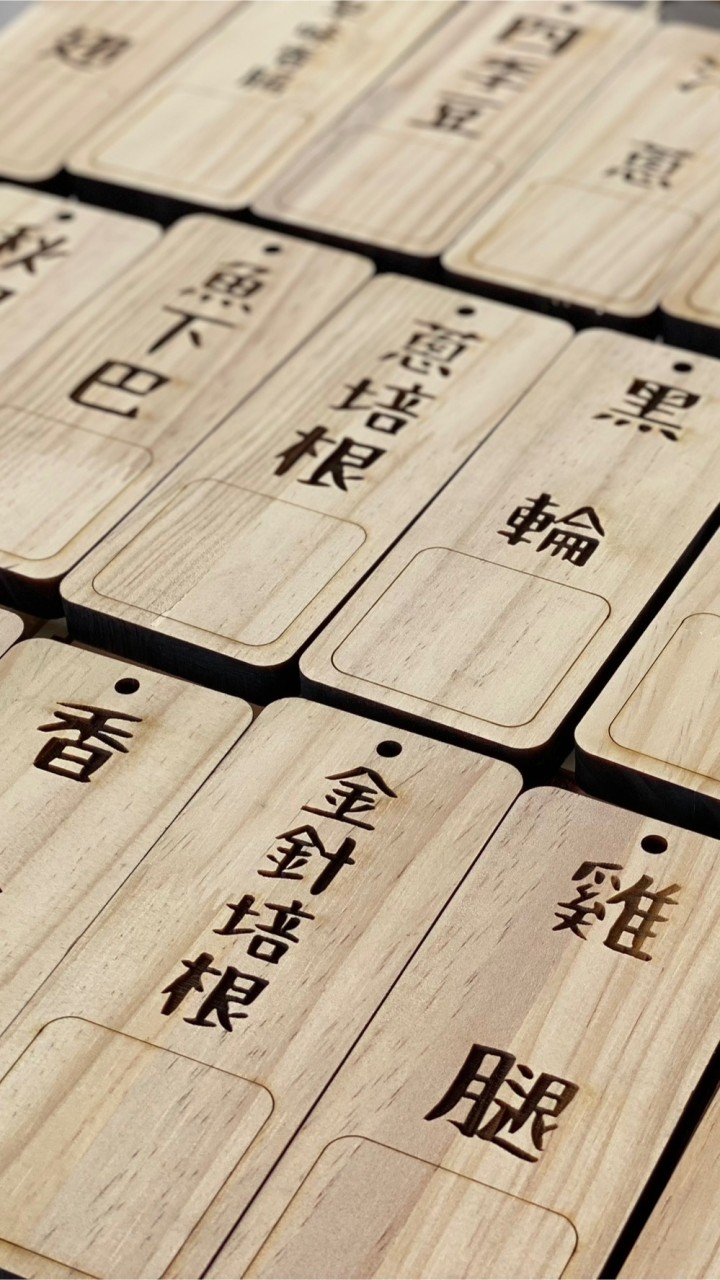 翅
四季豆
蔥
秋
魚下巴
蔥培根
黑輪
香
金針培根
雞腿